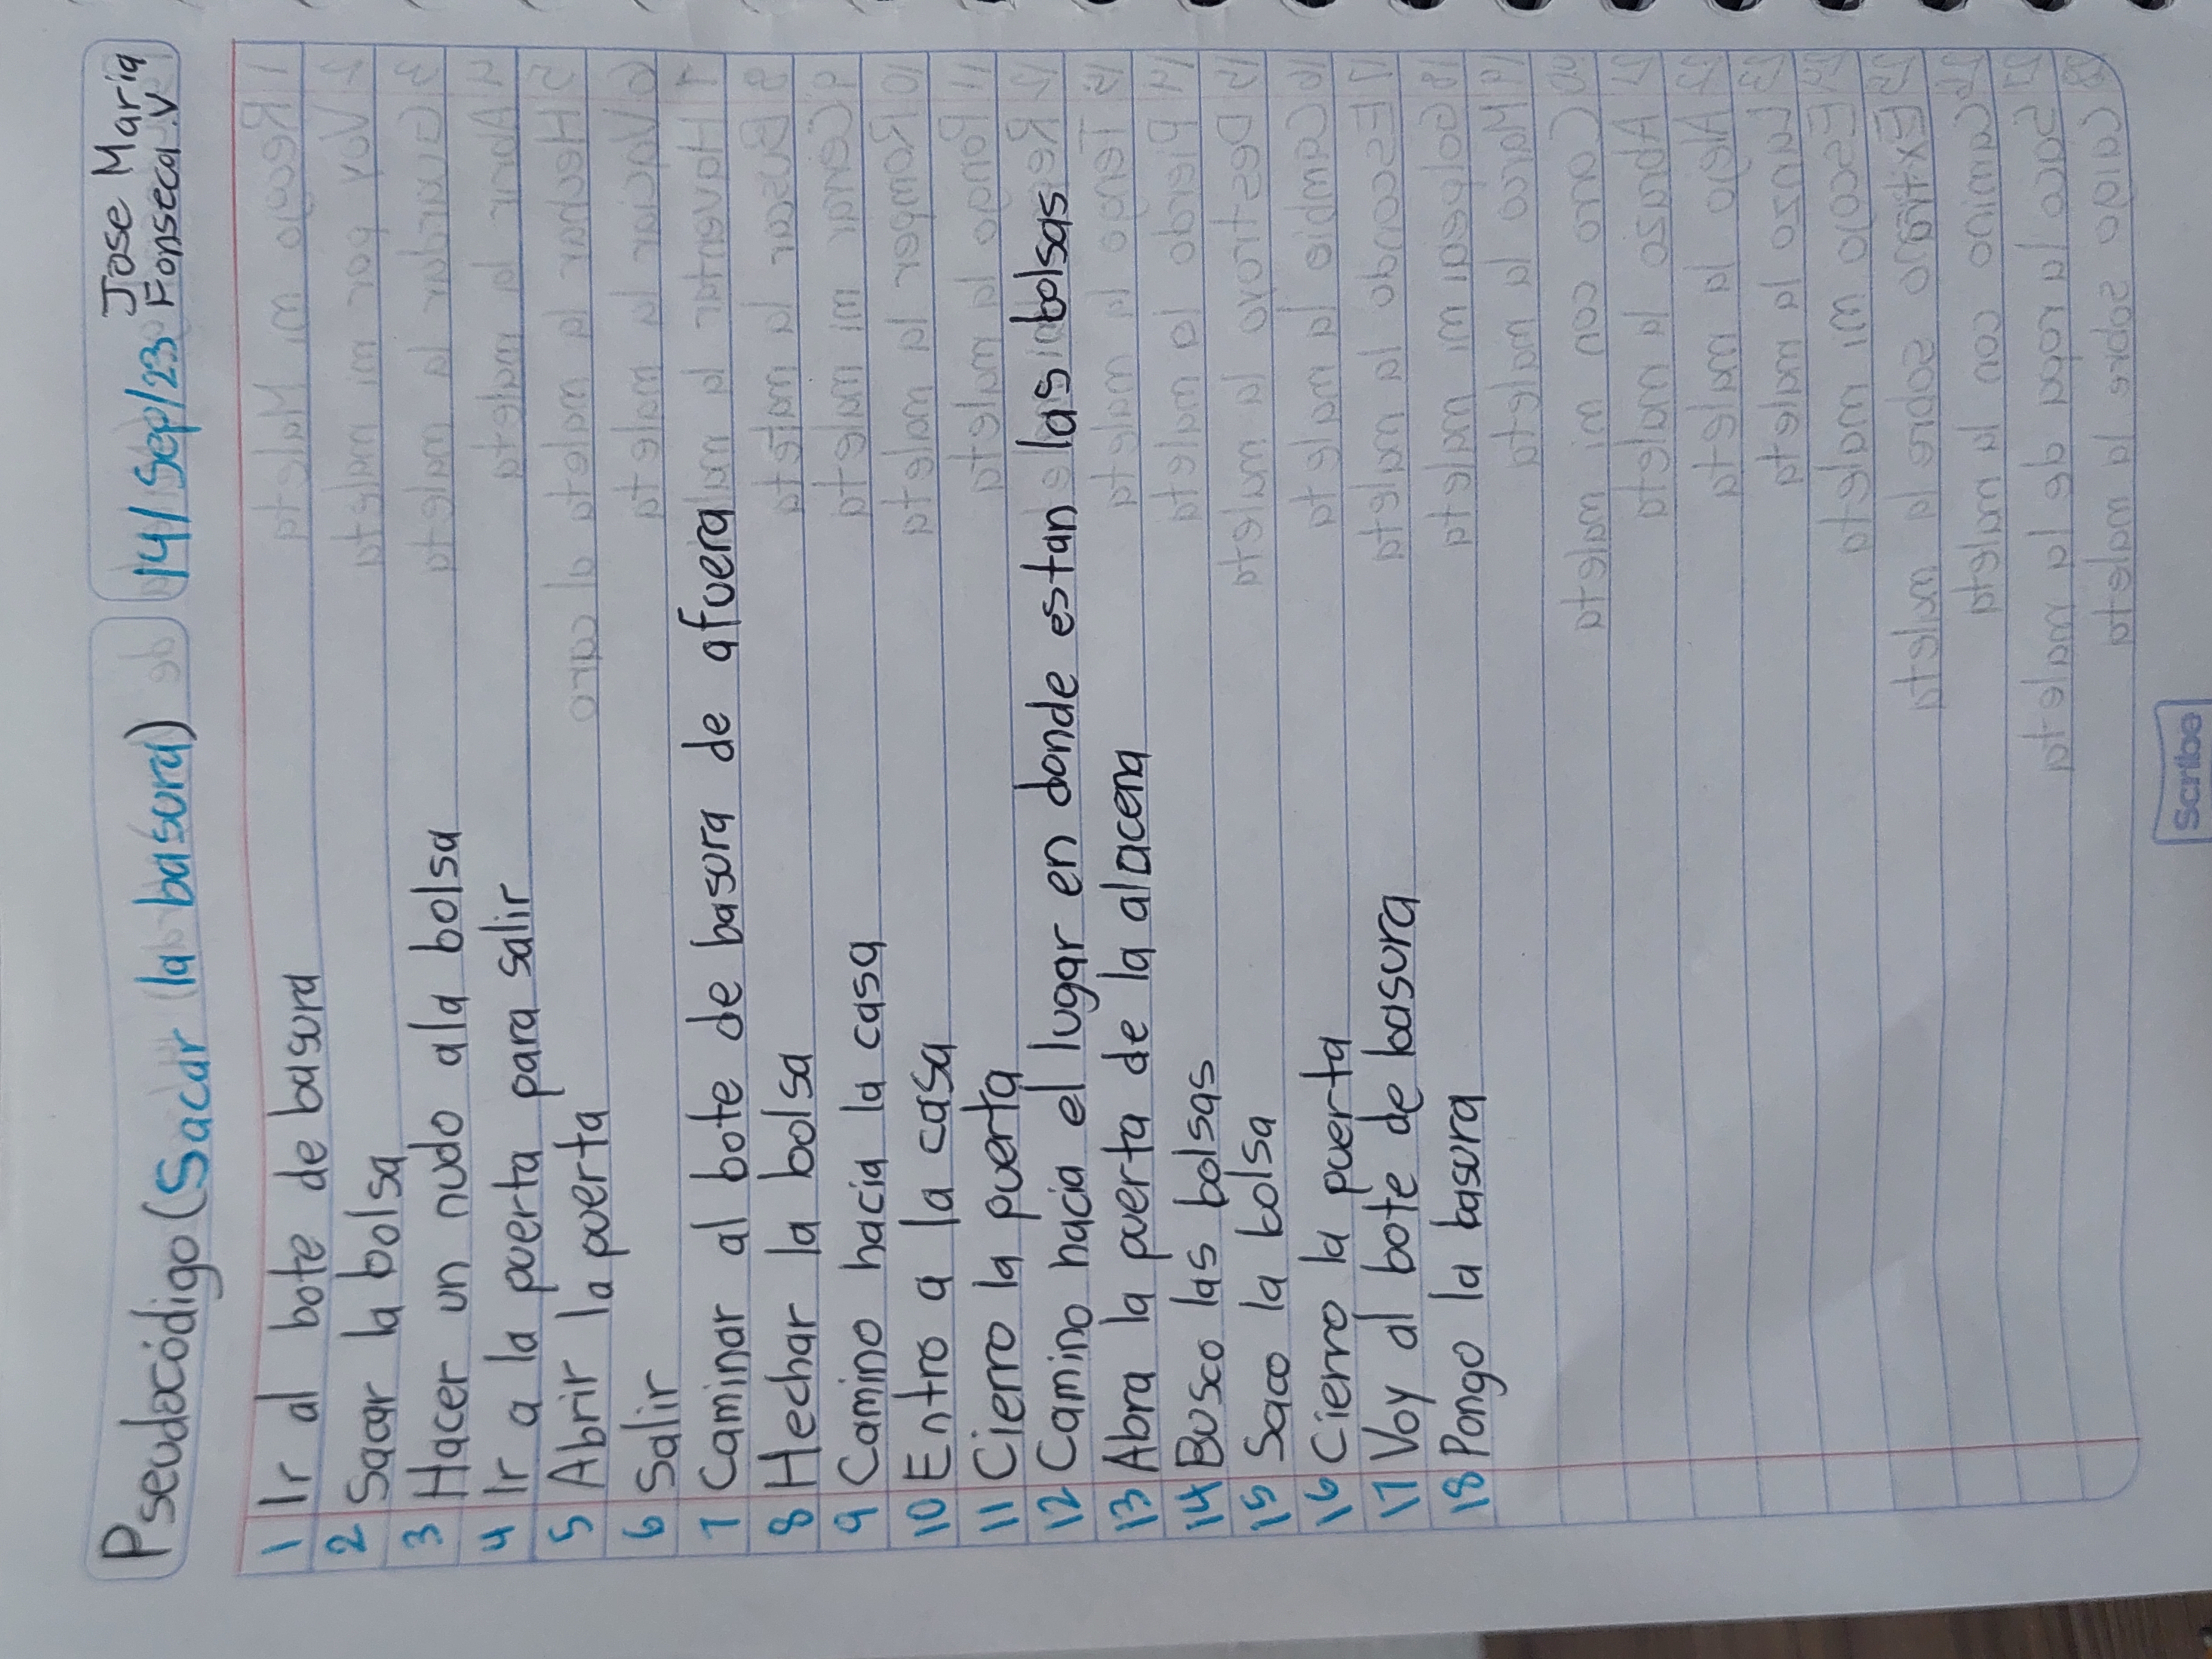 Pseudocódigo (Sacar la basura) 14/Sep/23 Jose Maria Fonseca.V
1 Ir al bote de basura
2 Sacar la bolsa
3 Hacer un nudo ala bolsa
4 Ir a la puerta para salir
5 Abrir la puerta
6 Salir
7 Caminar al bote de basura de afuera
8 Hechar la bolsa
9 Camino hacia la casa
10 Entro a la casa
11 Cierro la puerta
12 Camino hacia el lugar en donde estan las bolsas
13 Abra la puerta de la alacena
14 Busco las bolsas
15 Saco la bolsa
16 Cierro la puerta
17 Voy al bote de basura
18 Pongo la basura
Scribe